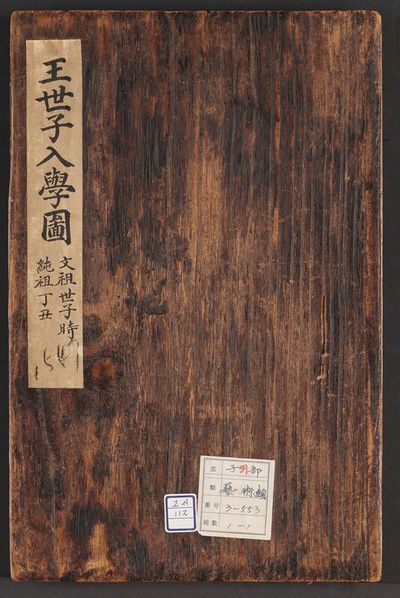 王世子入學圖
文祖世子時
純祖丁丑
部 子 部
類 藝術類
番号 3-553
冊数 1-1
112